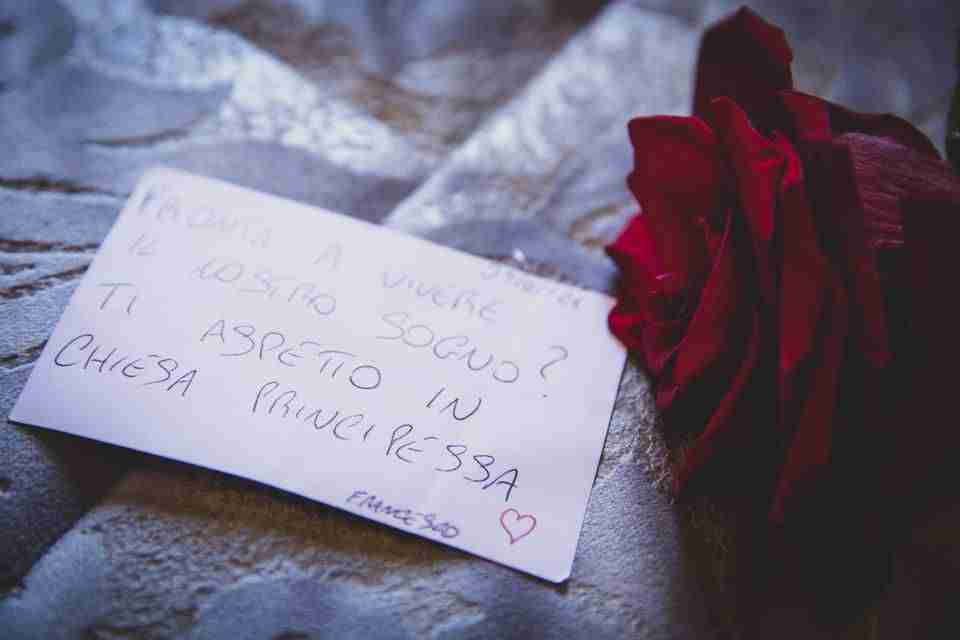 PRONTA A VIVERE
IL NOSTRO SOGNO?
TI ASPETTO IN
CHIESA PRINCIPESSA
FRANCESCO